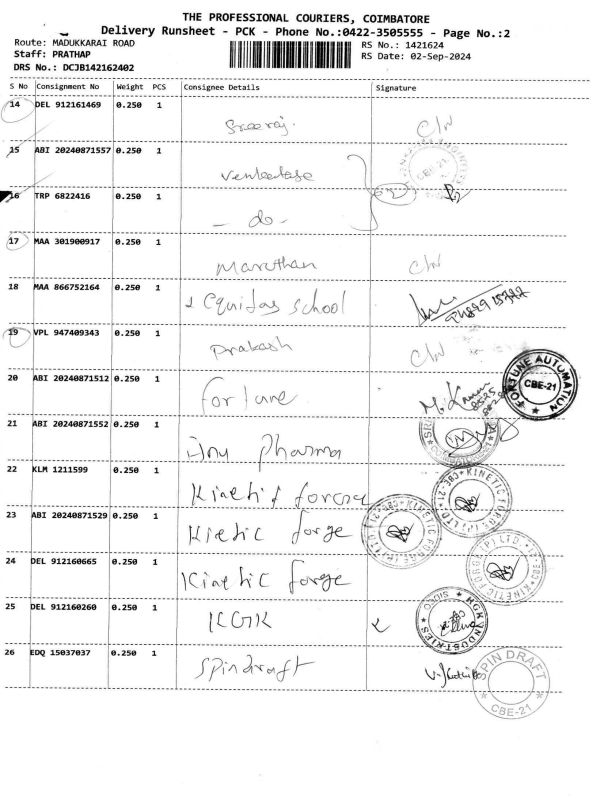 THE PROFESSIONAL COURIERS, COIMBATORE
Delivery Runsheet - PCK - Phone No.:0422-3505555 - Page No.:2
Route: MADUKKARAI ROAD
RS No.: 1421624
Staff: PRATHAP
RS Date: 02-Sep-2024
DRS No.: DCJB142162402
S No Consignment No Weight PCS Consignee Details Signature
14 DEL 912161469 0.250 1
Sreeraj. C/N
15 ABI 20240871557 0.250 1
CBE-21
16 TRP 6822416 0.250 1
- do -
17 MAA 301900917 0.250 1
Maruthan C/N
18 MAA 866752164 0.250 1
Equitas School
19 VPL 947409343 0.250 1
Prakash C/N
20 ABI 20240871512 0.250 1
fortune FORTUNE AUTOMATION CBE-21
21 ABI 20240871552 0.250 1
Pharma
22 KLM 1211599 0.250 1
Kinetic forge KINETIC FORGE (P) LTD.
23 ABI 20240871529 0.250 1
Kietic forge KINETIC FORGE (P) LTD.
24 DEL 912160665 0.250 1
Kinetic forge KINETIC FORGE (P) LTD.
25 DEL 912160260 0.250 1
KGK INDUSTRIES SIDCO
26 EDQ 15037037 0.250 1
Spindraft SPIN DRAFT CBE-21